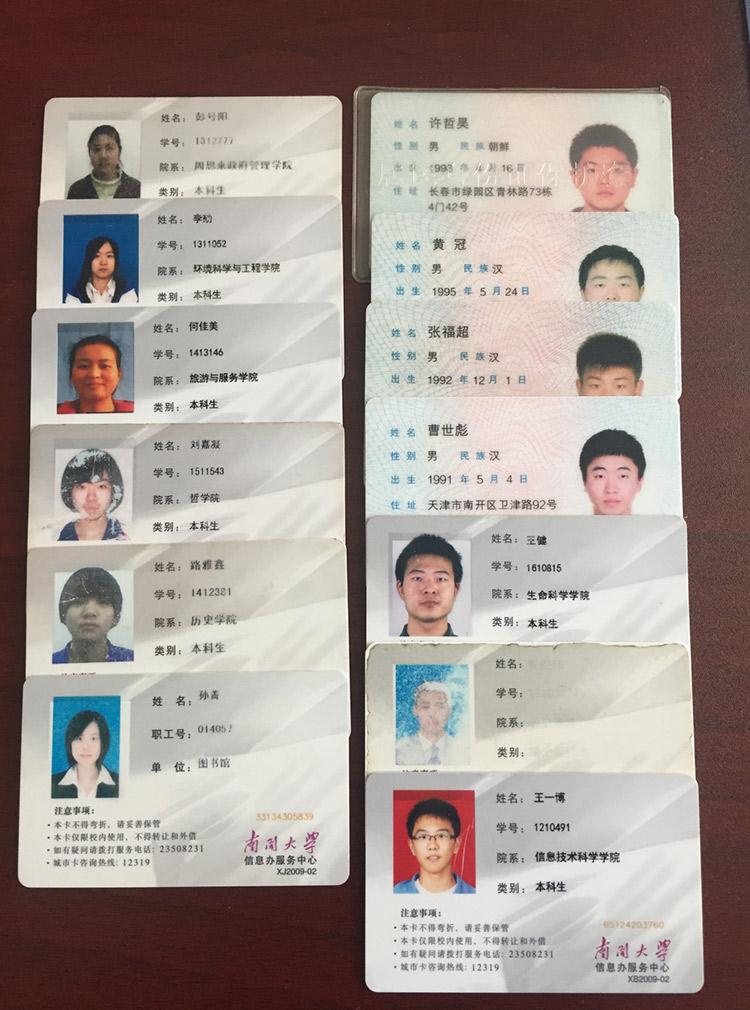 姓名：彭号阳
学号：1312777
院系：周恩来政府管理学院
类别：本科生
姓名：李
学号：1311052
院系：环境科学与工程学院
类别：本科生
姓名：何佳美
学号：1413146
院系：旅游与服务学院
类别：本科生
姓名：刘嘉凝
学号：1511543
院系：哲学院
类别：本科生
姓名：路雅鑫
学号：1412381
院系：历史学院
类别：本科生
姓 名：孙
职工号：01405
单 位：图书馆
注意事项：
·本卡不得弯折，请妥善保管
·本卡仅限校内使用，不得转让和外借
·如有疑问请拨打服务电话：23508231
·城市卡咨询热线：12319
33134305839
南開大學
信息办服务中心
XJ2009-02
姓名 许哲昊
性别 男 民族 朝鲜
出生 1993 年 4 月 16 日
住址 长春市绿园区青林路73栋
4门42号
姓名 黄冠
性别 男 民族 汉
出生 1995 年 5 月 24 日
姓名 张福超
性别 男 民族 汉
出生 1992 年 12 月 1 日
姓名 曹世彪
性别 男 民族 汉
出生 1991 年 5 月 4 日
住址 天津市南开区卫津路92号
姓名：王健
学号：1610815
院系：生命科学学院
类别：本科生
姓名：
学号：
院系：
类别：
姓名：王一博
学号：1210491
院系：信息技术科学学院
类别：本科生
注意事项：
·本卡不得弯折，请妥善保管
·本卡仅限校内使用，不得转让和外借
·如有疑问请拨打服务电话：23508231
·城市卡咨询热线：12319
65124203760
南開大學
信息办服务中心
XB2009-02